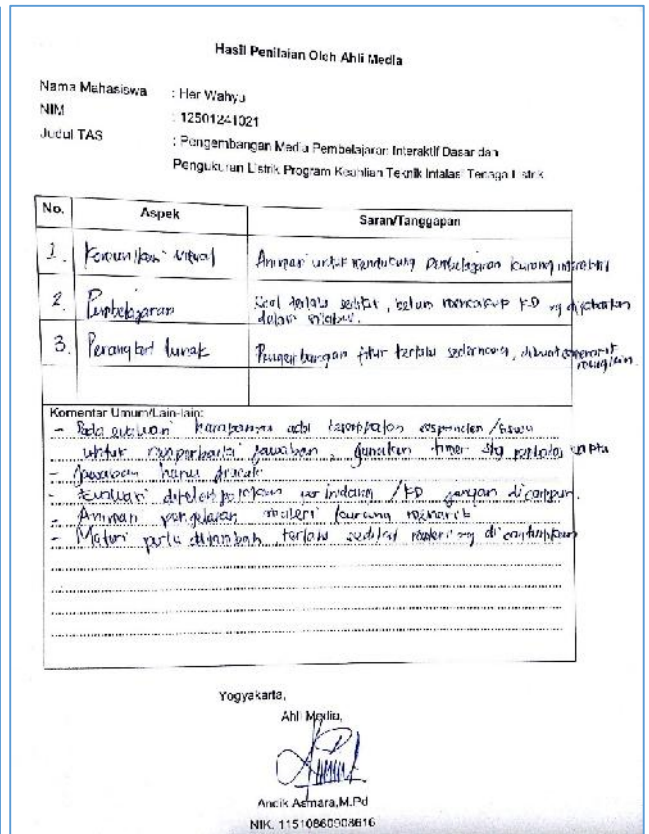 Hasil Penilaian Oleh Ahli Media
Nama Mahasiswa : Her Wahyu
NIM : 12501241021
Judul TAS : Pengembangan Media Pembelajaran Interaktif Dasar dan
Pengukuran Listrik Program Keahlian Teknik Intalasi Tenaga Listrik
No. Aspek Saran/Tanggapan
1. Komunikasi visual Animasi untuk mendukung pembelajaran kurang interaktif
2. Pembelajaran Soal terlalu sedikit, belum mencakup KD yg dijabarkan
dalam silabus.
3. Perangkat lunak Pengembangan fitur terlalu sederhana, dibuat
Komentar Umum/Lain-lain:
- Pada evaluasi harapannya ada kesempatan responden/siswa
untuk memperbaiki jawaban, gunakan timer sbg waktu
- Jawaban harus diacak
- Evaluasi /KD jangan dicampur.
- Animasi penjelasan materi kurang menarik
- Materi perlu ditambah terlalu sedikit materi yg dicantumkan
Yogyakarta,
Ahli Media,
Andik Asmara,M.Pd
NIK. 11510860908616